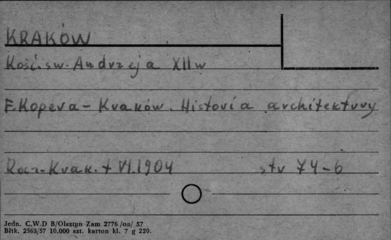 KRAKÓW
Kość. św. Andrzeja XII w
F. Kopera - Kraków. Historia architektury
Rocz. Krak. t VI. 1904 str 74-6
Jedn. C.W.D B/Olsztyn Zam 2776 /oo/ 57
Bltk. 2563/57 10.000 szt. karton kl. 7 g 220.